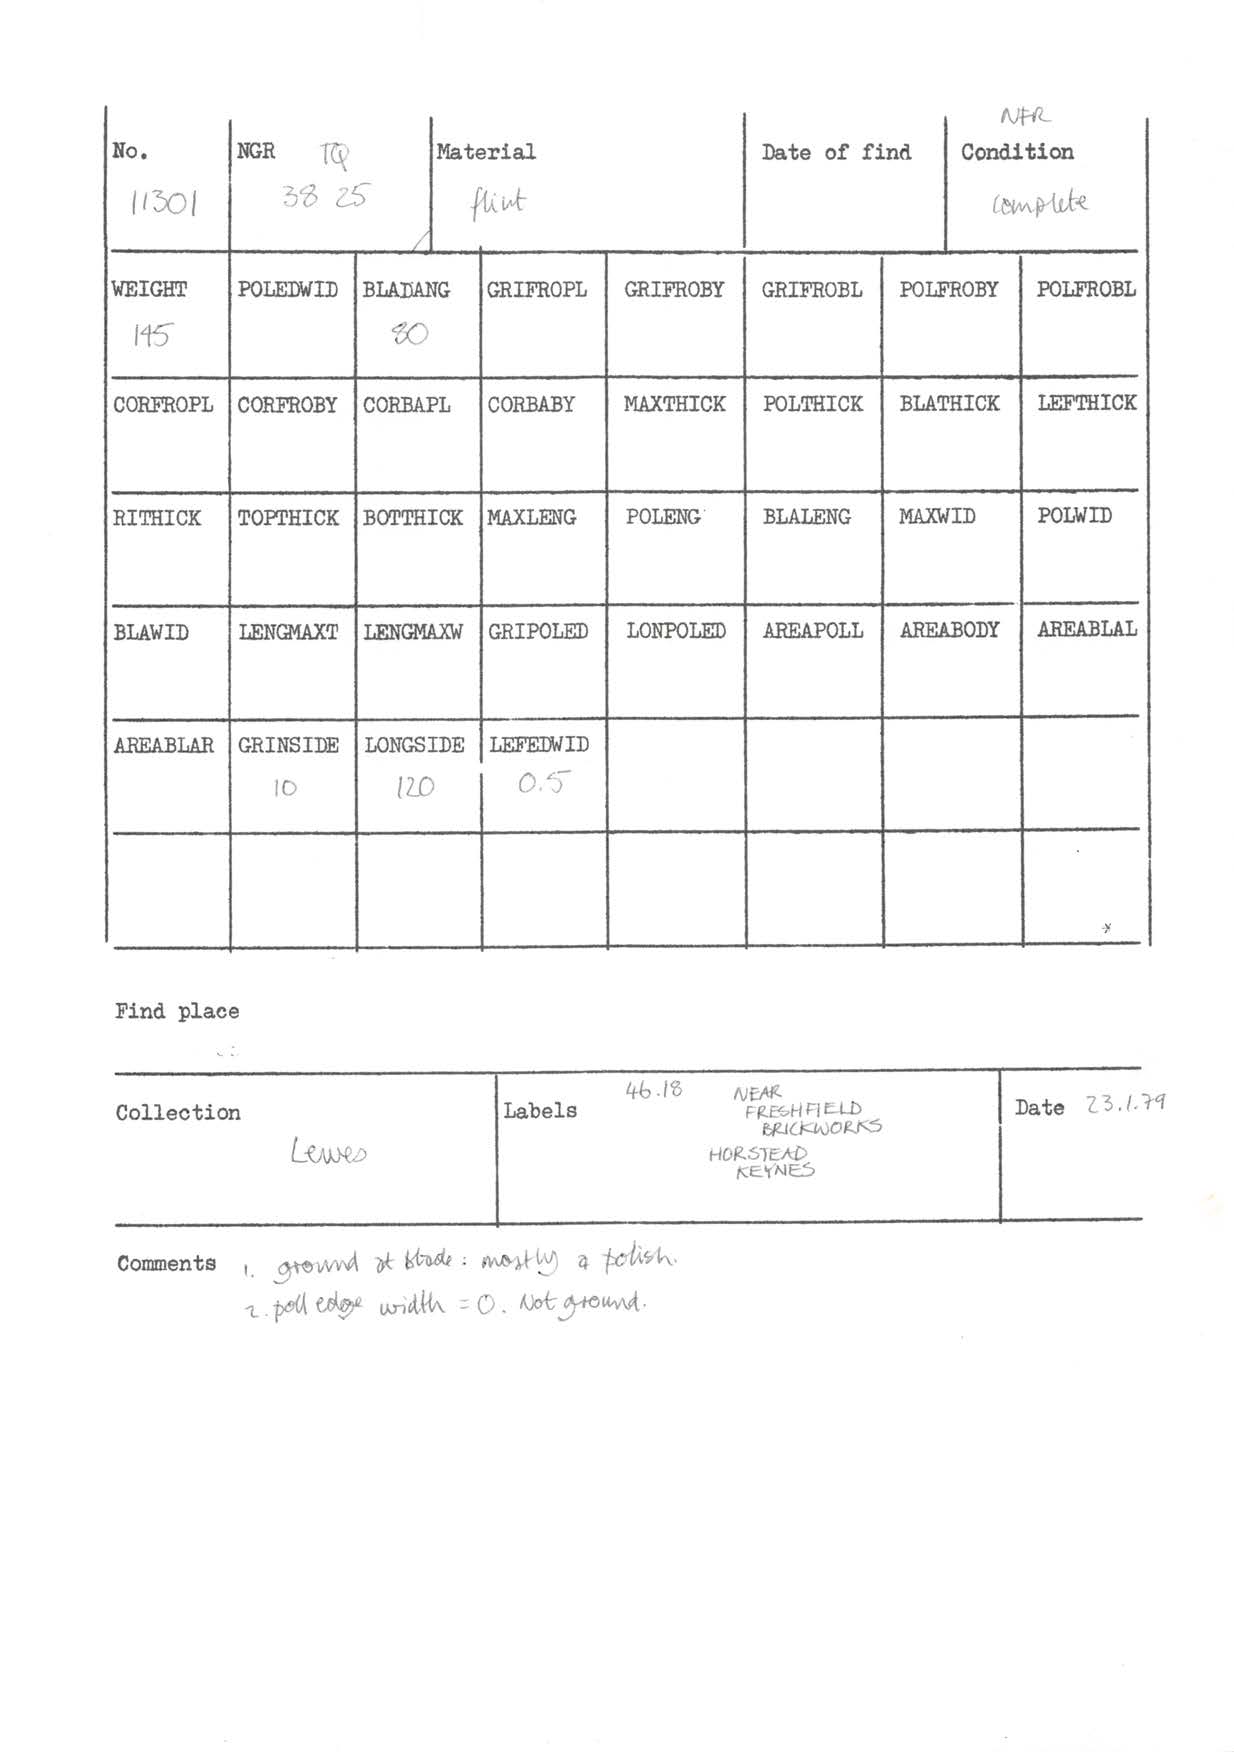 NFR
No. NGR TQ Material Date of find Condition
11301 38 25 flint complete
WEIGHT POLEDWID BLADANG GRIFROPL GRIFROBY GRIFROBL POLFROBY POLFROBL
145 80
CORFROPL CORFROBY CORBAPL CORBABY MAXTHICK POLTHICK BLATHICK LEFTHICK
RITHICK TOPTHICK BOTTHICK MAXLENG POLENG BLALENG MAXWID POLWID
BLAWID LENGMAXT LENGMAXW GRIPOLED LONPOLED AREAPOLL AREABODY AREABLAL
AREABLAR GRINSIDE LONGSIDE LEFEDWID
10 120 0.5
Find place
Collection Lewes
Labels 46.18 NEAR
FRESHFIELD
BRICKWORKS
HORSTEAD
KEYNES
Date 23.1.79
Comments 1. ground at blade: mostly a polish.
2. poll edge width = 0. Not ground.